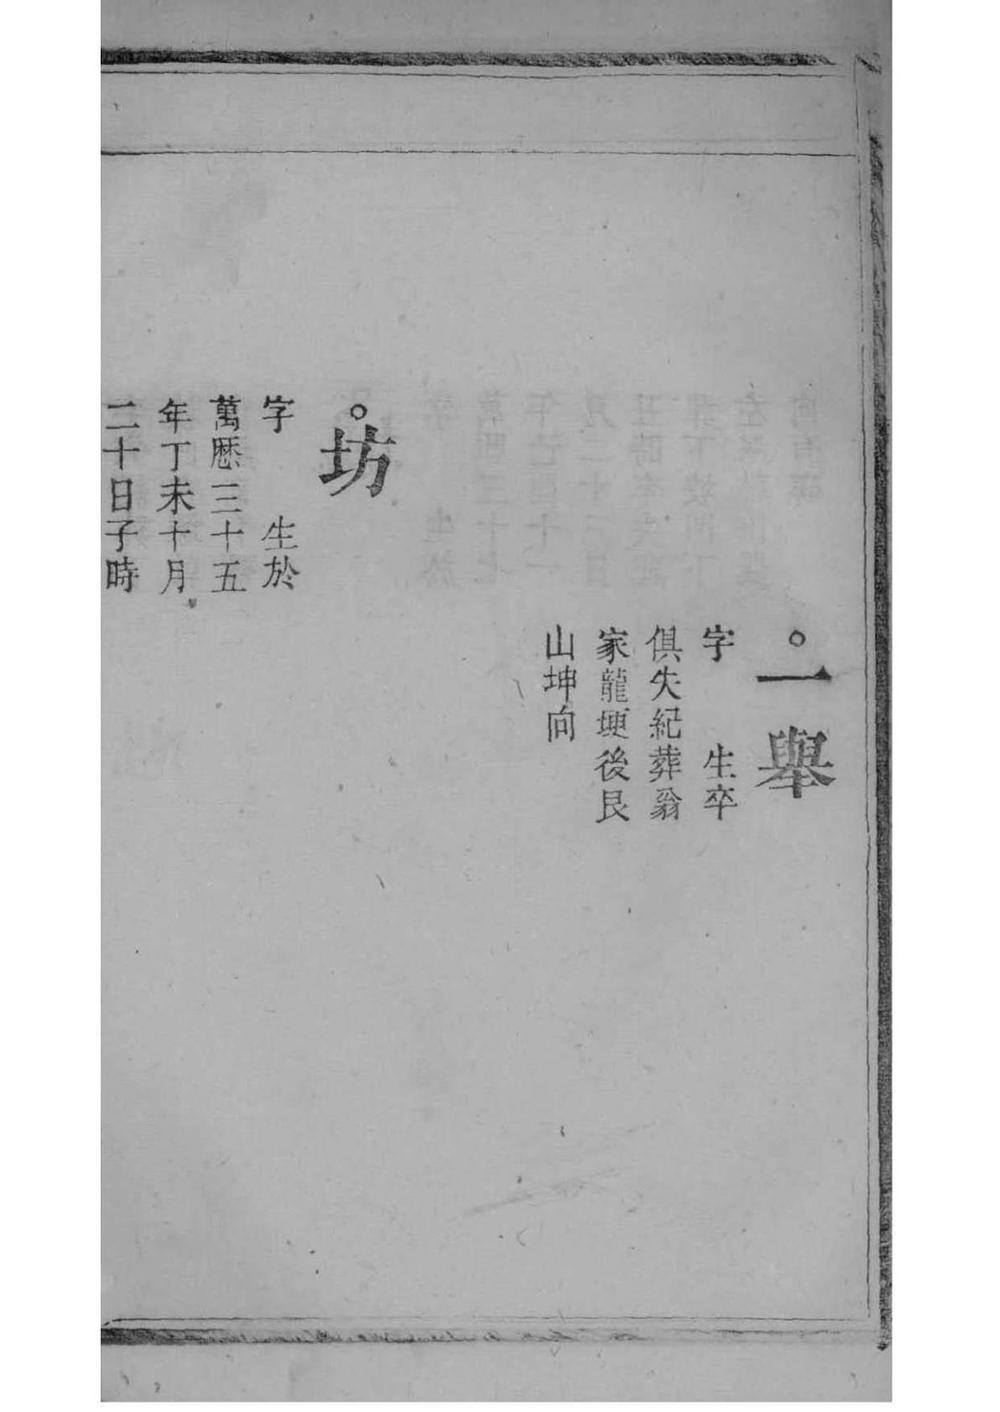 一舉
字　生卒
俱失紀葬翁
家龍埂後艮
山坤向
坊
字　生於
萬厯三十五
年丁未十月
二十日子時